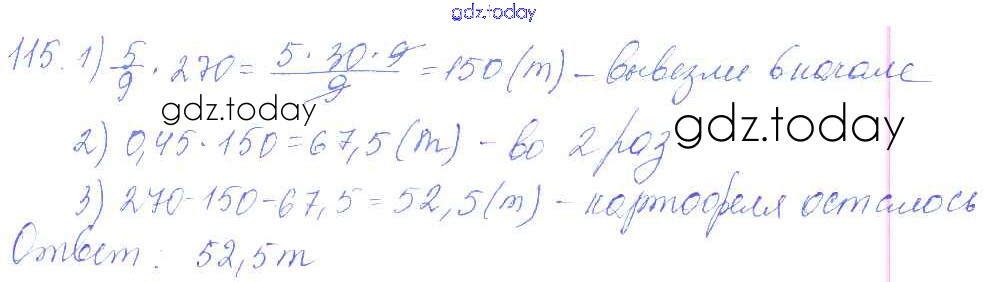 gdz.today
115. 1) 5/9 · 270 = 5 · 30 · 9 / 9 = 150 (т) – вывезли вначале
gdz.today
2) 0,45 · 150 = 67,5 (т) – во 2 раз gdz.today
3) 270 - 150 - 67,5 = 52,5 (т) – картофеля осталось
Ответ: 52,5 т